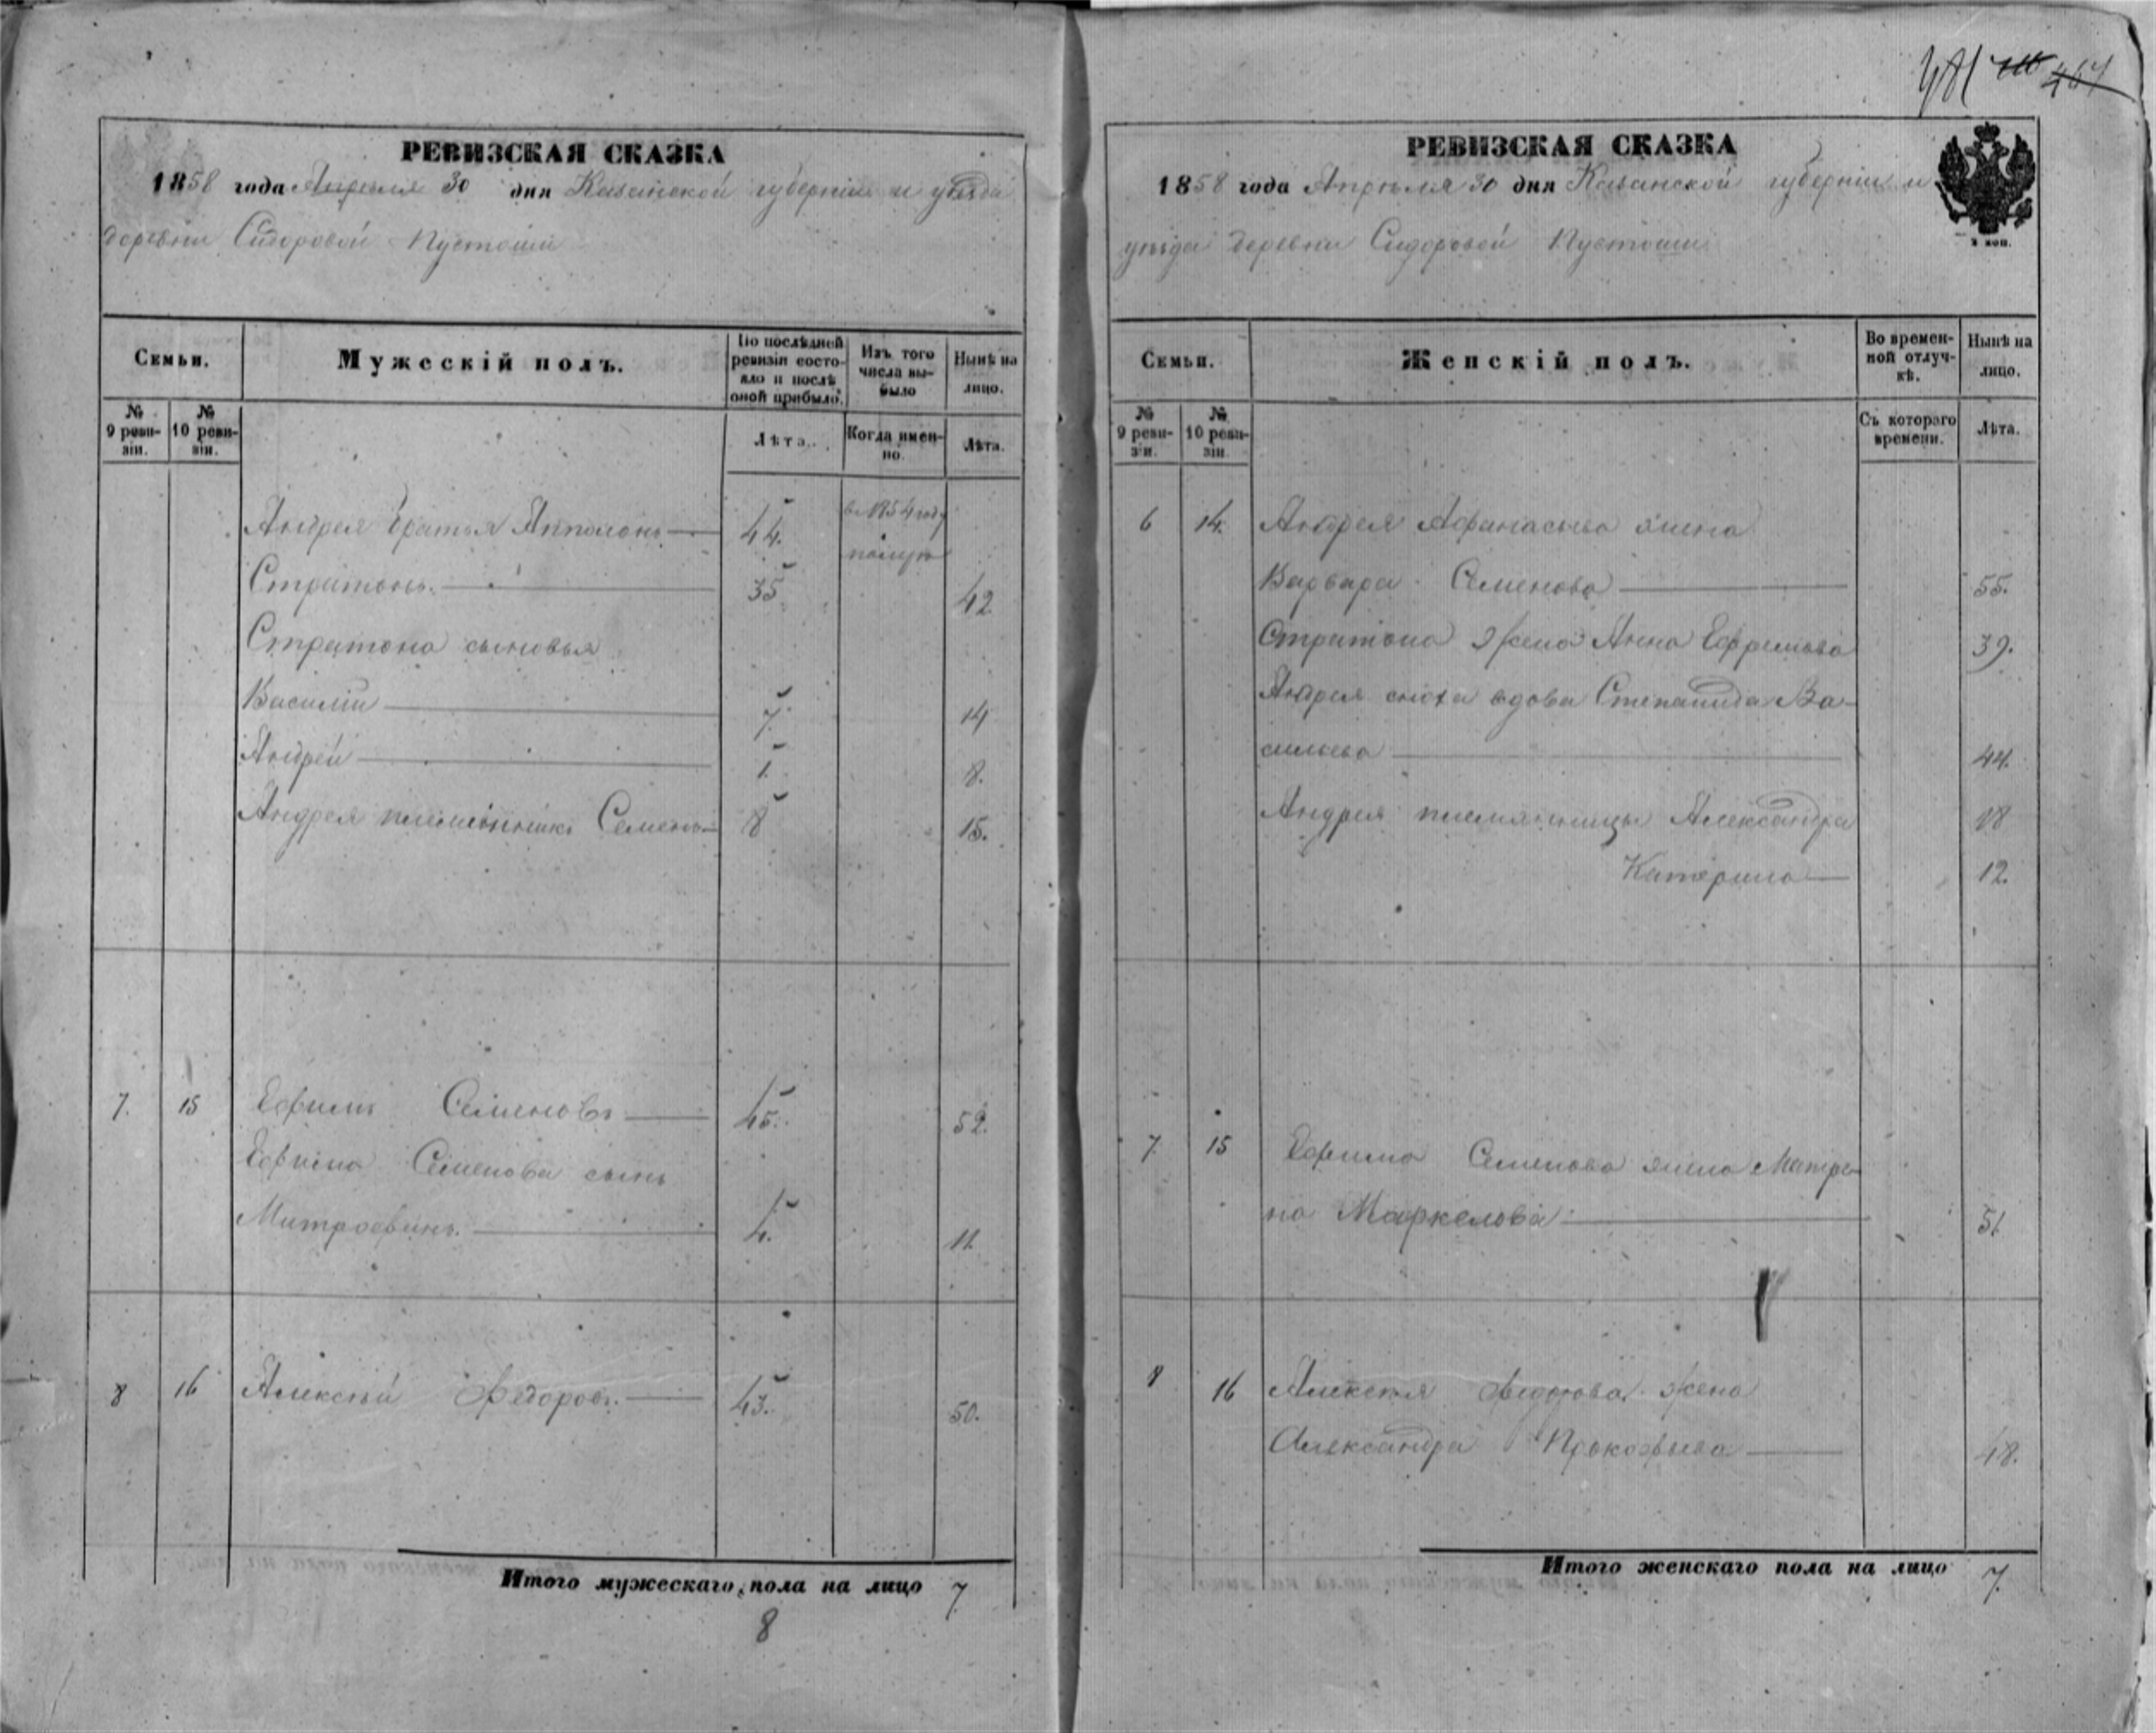 481 467
РЕВИЗСКАЯ СКАЗКА
1858 года Апреля 30 дня Казанской губерніи и уѣзда
деревни Сидоровой Пустоши
Семьи.
Мужескій полъ.
По послѣдней ревизіи состояло и послѣ оной прибыло.
Изъ того числа выбыло
Нынѣ на лицо.
№ 9 ревизіи.
№ 10 ревизіи.
Лѣта.
Когда именно.
Лѣта.
Андрея братья Апполонъ 44. в 1854 году
Стратонъ. 35 42.
Стратона сыновья
Василій 7. 14
Андрей 1. 8.
Андрея племянникъ Семенъ 8 15.
7. 15 Ефимъ Семеновъ 45. 52.
Ефима Семенова сынъ
Митрофанъ. 4. 11.
8 16 Алексѣй Федоровъ. 43. 50.
Итого мужескаго пола на лицо 7
8
РЕВИЗСКАЯ СКАЗКА
1858 года Апрѣля 30 дня Казанской губерніи и
уѣзда деревни Сидоровой Пустоши
Семьи.
Женскій полъ.
Во временной отлучкѣ.
Нынѣ на лицо.
№ 9 ревизіи.
№ 10 ревизіи.
Съ котораго времени.
Лѣта.
6 14. Андрея Афанасьева жена
Варвара Семенова 55.
Стратона жена Анна Ефремова 39.
Андрея сноха вдова Степанида Ва-
сильева 44.
Андрея племянницы Александра 18
Катерина 12.
7. 15 Ефима Семенова жена Матре-
на Маркелова 51
8 16 Алексѣя Федорова жена
Александра Прокофьева 48.
Итого женскаго пола на лицо 7.